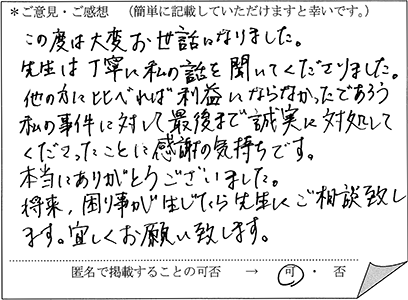 ＊ご意見・ご感想 （簡単に記載していただけますと幸いです。）
この度は大変お世話になりました。
先生は丁寧に私の話を聞いてくださりました。
他の方に比べれば利益にならなかったであろう
私の事件に対して最後まで誠実に対処して
くださったことに感謝の気持ちです。
本当にありがとうございました。
将来、困り事が生じたら先生にご相談致し
ます。宜しくお願い致します。
匿名で掲載することの可否 → 可 ・ 否